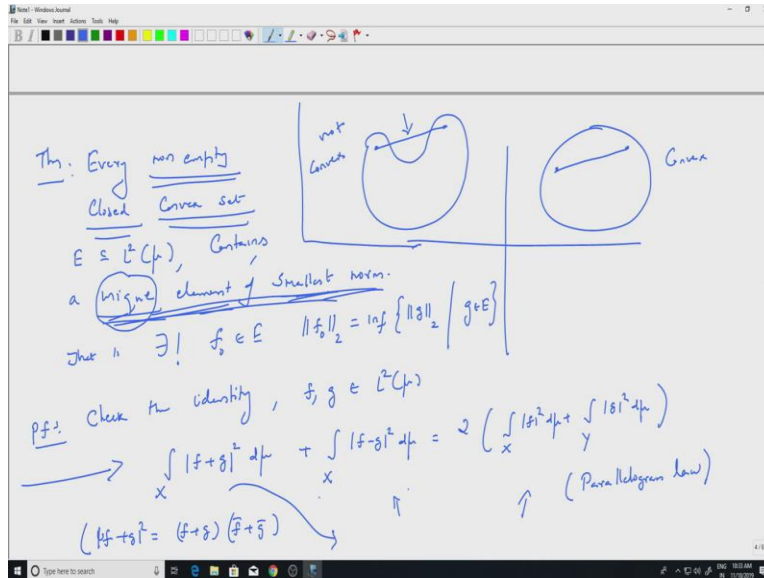 Note1 - Windows Journal
File Edit View Insert Actions Tools Help
B I
not
Convex
Convex
Thm: Every non empty
Closed Convex set
E ⊆ L²(μ), Contains
a unique element of smallest norm.
That is ∃! f₀ ∈ E ||f₀||₂ = inf { ||g||₂ | g∈E }
Pf: Check the identity, f, g ∈ L²(μ)
∫_X |f+g|² dμ + ∫_X |f-g|² dμ = 2 ( ∫_X |f|² dμ + ∫_Y |g|² dμ )
(Parallelogram law)
( |f+g|² = (f+g) (f̄+ḡ)
Type here to search
ENG 10:13 AM
IN 11/10/2019